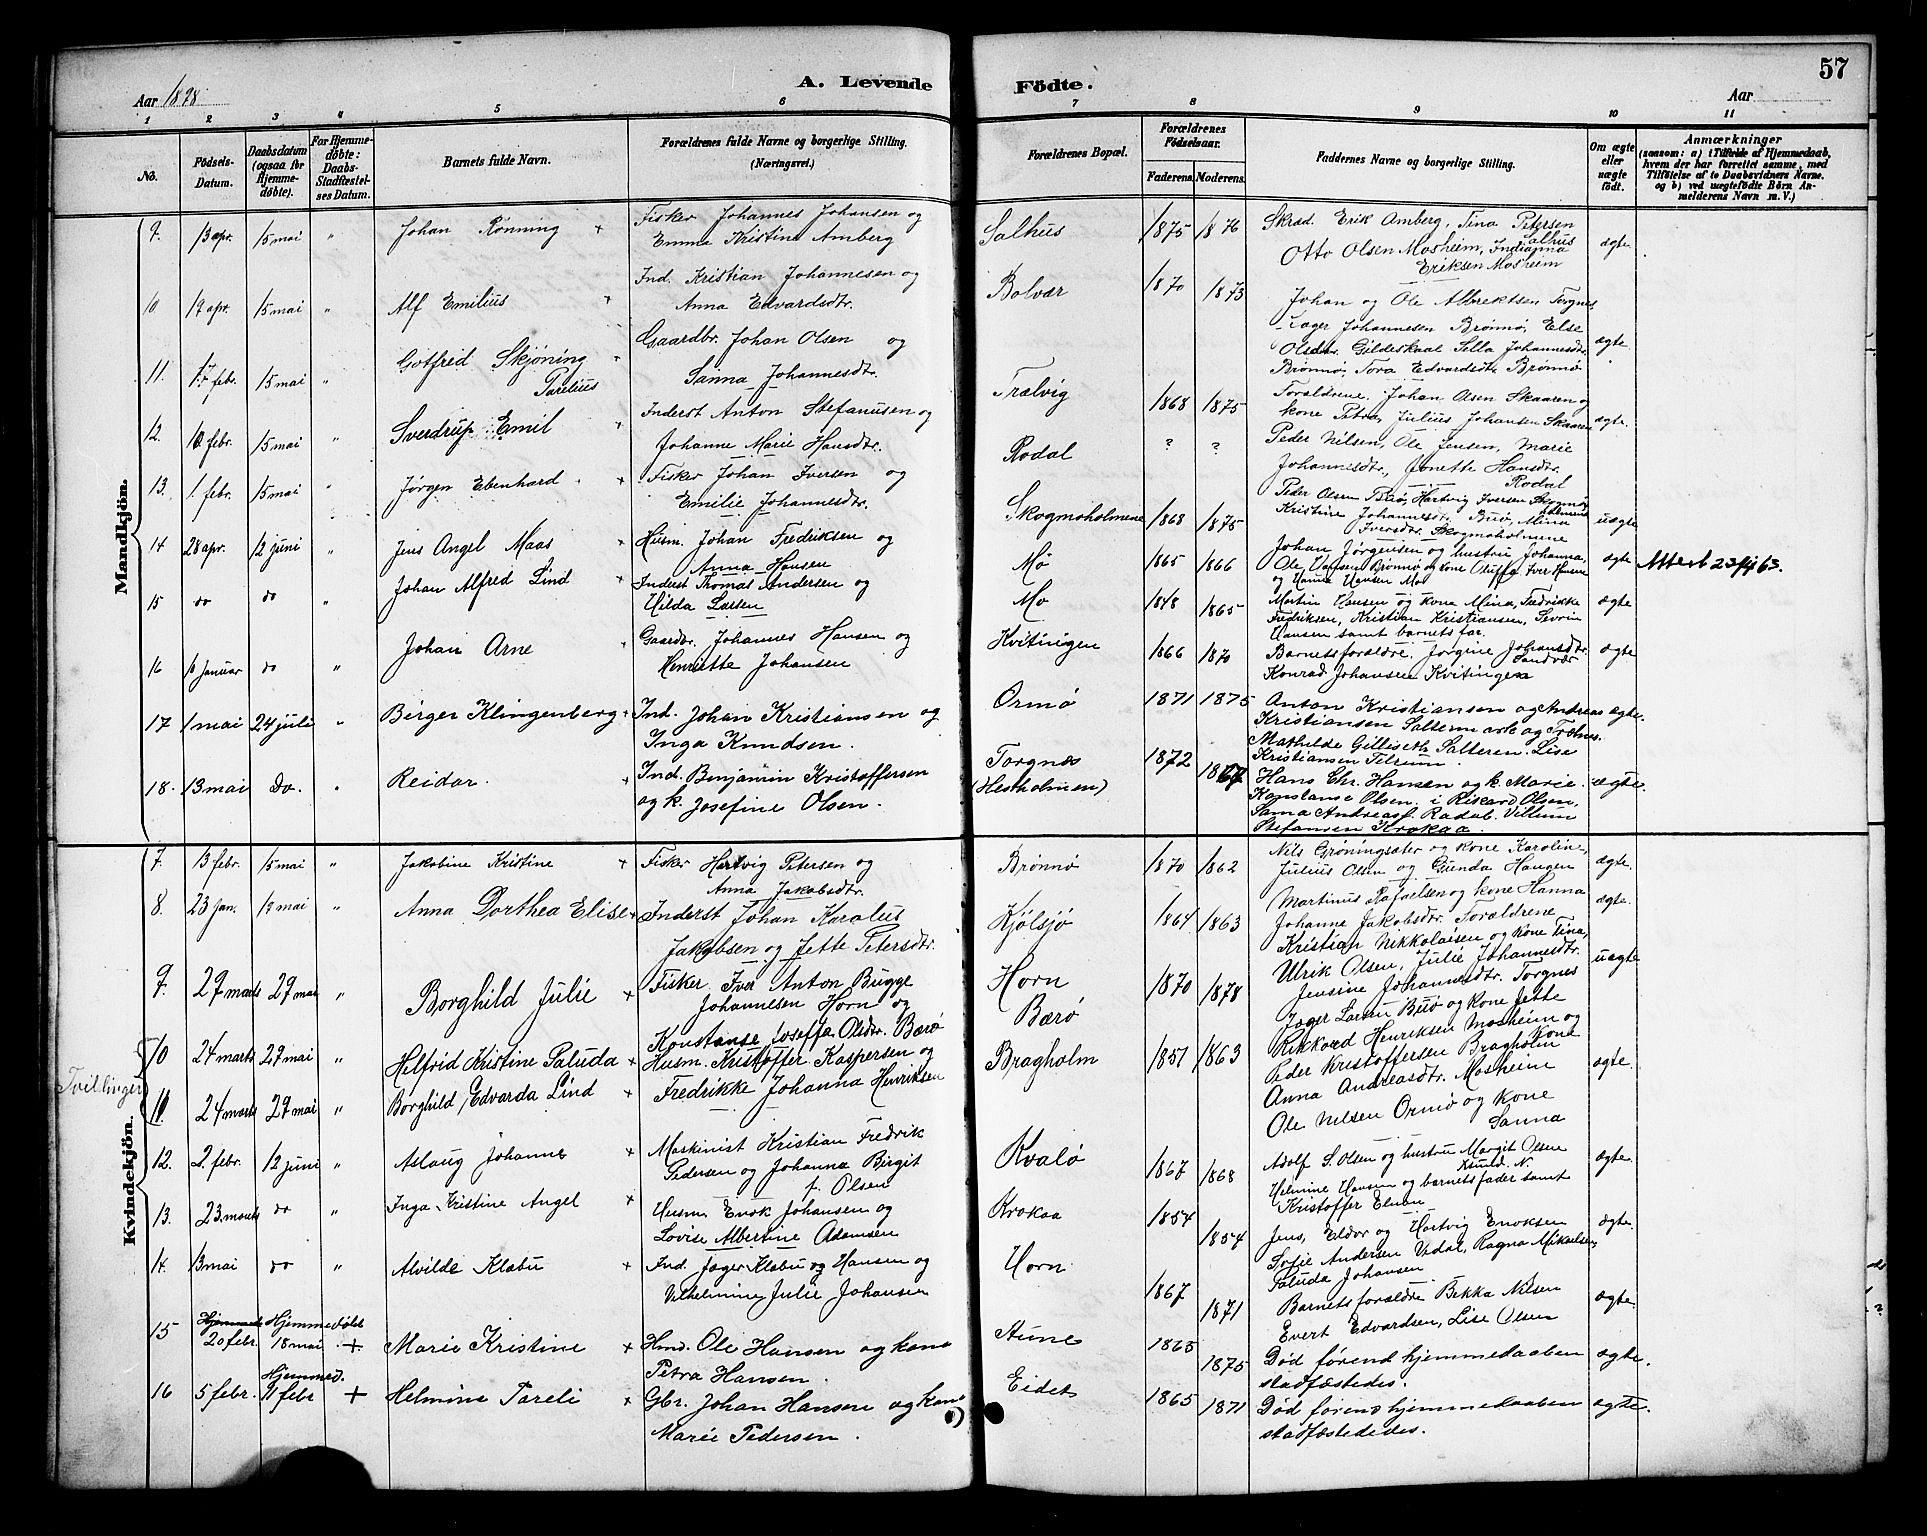 Aar 1898
A. Levende
Födte.
57
Aar
1 2 3 4 5 6 7 8 9 10 11
No.
Födsels-Datum.
Daabsdatum (ogsaa for Hjemme-döbte).
For Hjemme-döbte: Daabs-Stadfæstel-ses Datum.
Barnets fulde Navn.
Forældrenes fulde Navne og borgerlige Stilling. (Næringsvei.)
Forældrenes Bopæl.
Forældrenes Födselsaar.
Faderens. Moderens.
Faddernes Navne og borgerlige Stilling.
Om ægte eller uægte födt.
Anmærkninger
(saasom: a) i Tilfælde af Hjemmedaab, hvem der har forrettet samme, med Tilföielse af to Daabsvidners Navne, og b) ved uægtefödte Börn An-melderens Navn m. V.)
Mandkjön.
9. 13 apr. 15 mai " Johan Rønning + Fisker Johannes Johansen og
Emma Kristine Amberg
Salhus 1875 1876 Skræd. Erik Amberg, Tina Petersen Salhus
Otto Olsen Mosheim, Indianna
Eriksen Mosheim
ægte
10 19 apr. 15 mai " Alf Emilius + Ind. Kristian Johannesen og
Anna Edvardsdtr.
Bolvær 1870 1873 Johan og Ole Albrektsen Torgnes,
Jager Johannesen Brønnø, Else
Olsdtr. Gildeskaal Sella Johannesdtr.
Brønnø, Tora Edvardsdtr Brønnø
ægte
11. 17 febr. 15 mai " Gotfred Skjöning Parelius + Gaardbr. Johan Olsen og
Sanna Johannesdtr.
Trælvig 1868 1875 Forældrene, Johan Olsen Skaaren og
kone Petra, Julius Johansen Skaaren
ægte.
12. 10 febr. 15 mai " Sverdrup Emil + Inderst Anton Stefanusen og
Johanne Marie Hansdtr.
Rodal ? ? Peder Nilsen, Ole Jensen, Marie
Johannesdtr., Jonette Hansdtr.
Rodal
13. 1. febr. 15 mai " Jørgen Ebenhard + Fisker Johan Iversen og
Emilie Johannesdtr.
Skogmoholmene 1868 1875 Peder Olsen Buø, Hartvig Iversen Skogmoholmene
Kristine Johannesdtr. Buø, Mina
Iversdtr. Skogmoholmene
uægte
14 28 apr. 12 juni " Jens Angel Maas + Husm. Johan Fredriksen og
Anna Hansen
Mo 1865 1866 Johan Jørgensen og hustru Johanna,
Ole Hansen Brønnø og kone Oluffa, Iver Hansen
og Hanna Hansen Mo
ægte Attest 23/4 63.
15 do do " Johan Alfred Lind + Inderst Thomas Andersen og
Hilda Larsen
Mo 1848 1865 Martin Hansen og kone Mina, Fredrikke
Fredriksen, Kristian Kristiansen, Sevrin
Hansen samt barnets far.
ægte
16 10 januar do " Johan Arne + Gaardbr. Johannes Hansen og
Henriette Johansen
Kvitingen 1866 1870 Barnets forældre. Jorgine Johansdtr. Sandvær
Konrad Johansen Kvitingen
ægte
17 1 mai 24 juli " Birger Klingenberg + Ind. Johan Kristiansen og
Inga Knudsen.
Ormø 1871 1875 Anton Kristiansen og Andreas
Kristiansen
Mathilde Lise
Kristiansen
ægte.
18. 13 mai Do. " Reidar. + Ind. Benjamin Kristoffersen
og k. Josefine Olsen.
Torgnes
(Hestholmen) 1872 1867 Hans Chr. Hansen og k. Marie.
Konstanse Olsen. Rikard Olsen,
Sanna Andreasf. Rodal. Villum
Stefansen Krokaa.
ægte.
Kvindekjön.
7. 13 febr. 15 mai " Jakobine Kristine + Fisker Hartvig Petersen og
Anna Jakobsdtr.
Brønnø 1870 1862 Nils Grøningsæter og kone Karoline,
Julius Olsen og Gunda Haugen
ægte
8. 23 jan. 19 mai " Anna Dorthea Elise + Inderst Johan Karolus
Jakobsen og Jette Petersdtr.
Kjølsjø 1864 1863 Martinus Rafaelsen og kone Hanna
Johanne Jakobsdtr. Forældrene
Kristian Nikkolaisen og kone Tina,
ægte.
9. 29 marts 29 mai " Borghild Julie + Fisker Iver Anton Bugge
Johannesen Horn og
Konstanse Joseffa Olsdtr. Bærø
Horn
Bærø 1870 1878 Ulrik Olsen, Julie Johannesdtr.
Jensine Johannesdtr. Torgnes
Jager Larsen Buø og kone Jette
uægte
Tvillinger
10 24 marts 29 mai " Helfrid Kristine Paluda + Husm. Kristoffer Kaspersen og
Fredrikke Johanna Henriksen
Bragholm 1857 1863 Rikkard Henriksen Mosheim og
Peder Kristoffersen Bragholm kone
Anna Andreasdtr. Mosheim
ægte
11 24 marts 29 mai " Borghild Edvarda Lind +
Ole Nilsen Ormø og kone
Sanna
12. 2. febr. 12 juni " Aslaug Johanne + Maskinist Kristian Fredrik
Pedersen og Johanna Birgit
f. Olsen
Kvalø 1867 1868 Adolf S. Olsen og hustru Margit Olsen
Helmine Hansen og barnets fader samt
Kristoffer
ægte
13. 23. marts do " Inga Kristine Angel + Husm. Enok Johansen og
Lovise Albertine Adamsen
Krokaa 1854 1854 Jens, Eldor og Hartvig Enoksen
Sofie Andersen Vedal, Ragna Mikaelsen,
Paluda Johansen
ægte
14. 13 mai do " Alvilde Klæbu + Ind. Jager Klæbu og Hansen og
Vilhelmine Julie Johansen
Horn 1867 1871 Barnets forældre Bekka Nilsen
Evert Edvardsen, Lise Olsen
ægte
15 20 febr. Hjemmedøbt 18 mai + Marie Kristine + Hmd. Ole Hansen og kone
Petra Hansen.
Aune 1865 1875 Død førend hjemmedaaben
stadfæstedes.
ægte.
16 5 febr. Hjemmed. 11 febr + Helmine Pareli + Gbr. Johan Hansen og kone
Marie Pedersen.
Eidet 1865 1871 Død førend hjemmedaaben
stadfæstededes.
ægte.